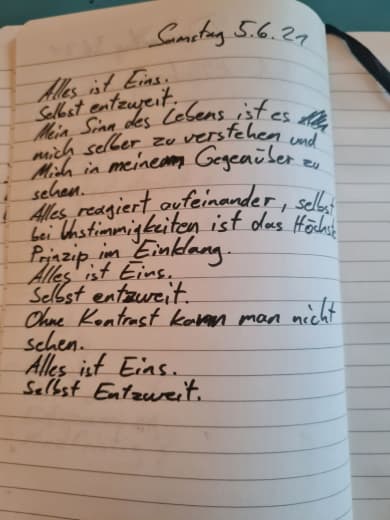 Samstag 5.6.21
Alles ist Eins.
Selbst entzweit.
Mein Sinn des Lebens ist es
mich selber zu verstehen und
Mich in meinem Gegenüber zu
sehen.
Alles reagiert aufeinander, selbst
bei Unstimmigkeiten ist das Höchste
Prinzip im Einklang.
Alles ist Eins.
Selbst entzweit.
Ohne Kontrast kann man nicht
sehen.
Alles ist Eins.
Selbst Entzweit.